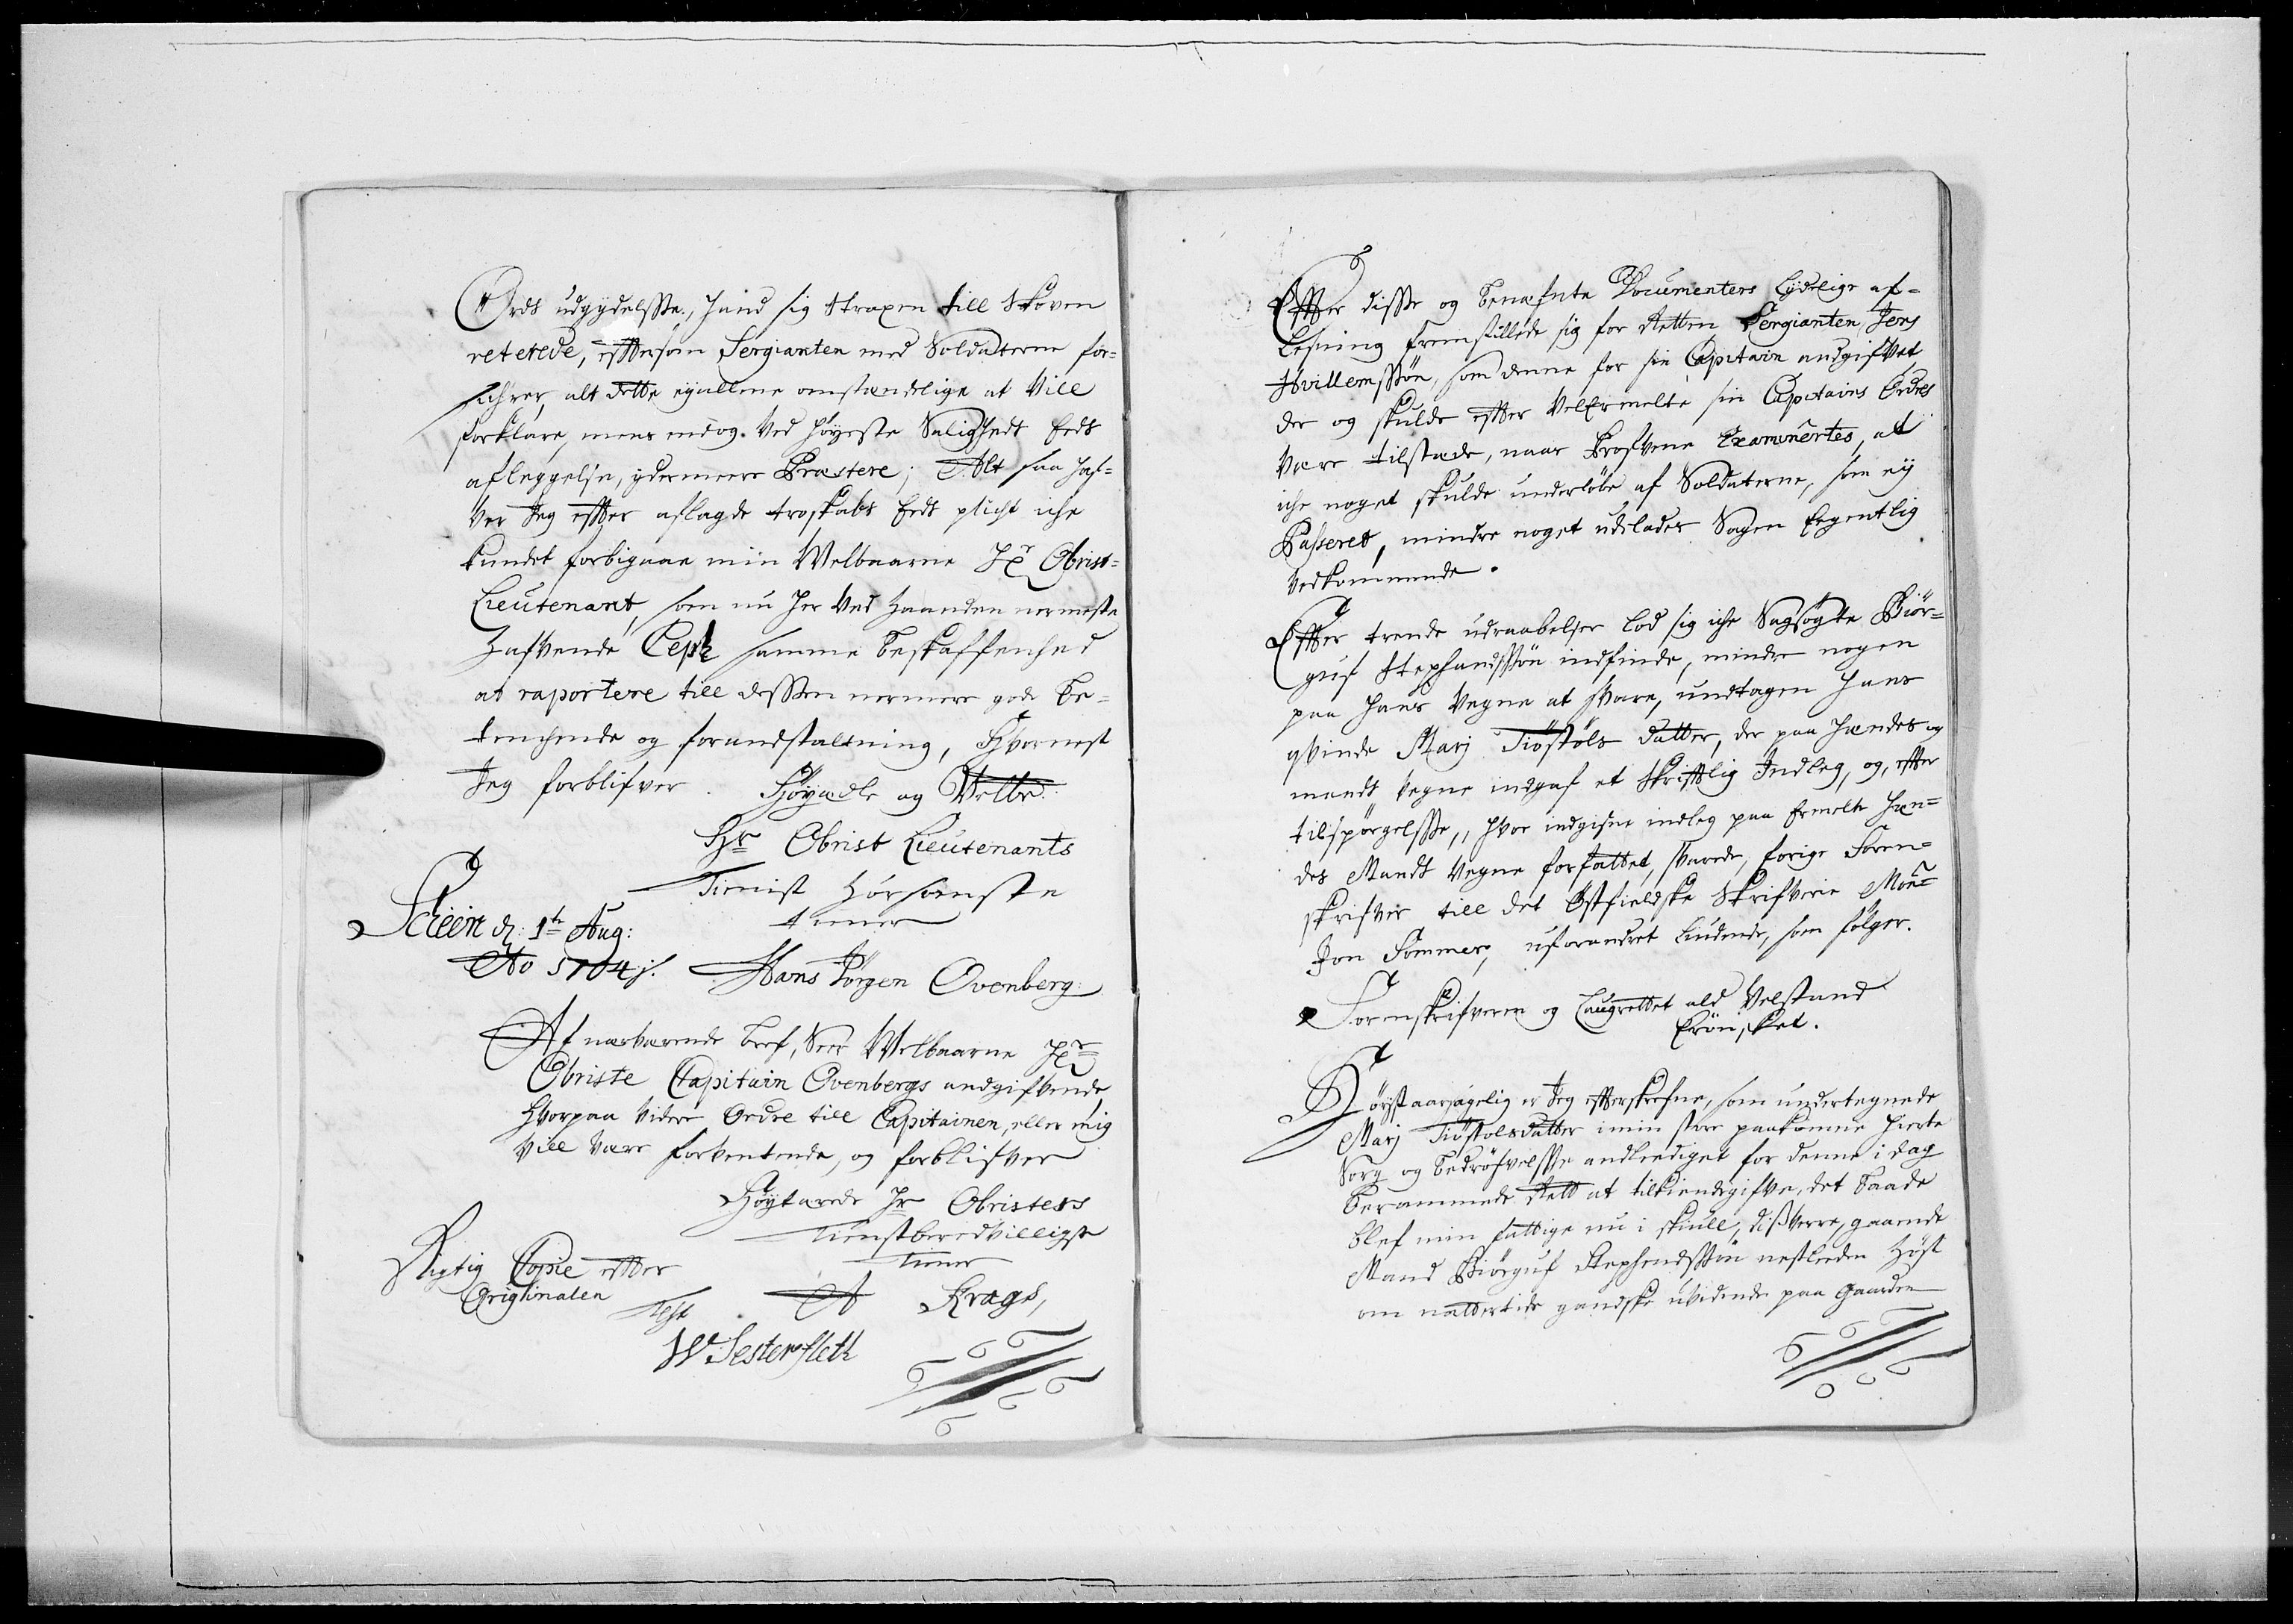 Ords udgydelsse, hand sig straxen till Skoven
reterede, efftersom Sergianten med Soldaterne for-
sichrer, alt dette eyallene omstændelige at vill
forklare, mens endog ved høyeste Saligheds Eeds
afleggelse, ydermeere Præstere; Alt saa haf-
ver Jeg effter aflagde troskabs Eeds plicht iche
kundet forbigaae min Welbaarne Hr Obrist-
Lieutenant, som nu her ved haanden nermeste
hafvende samme beskaffenhed
at raportere till dessen nermere gode be-
tenchende og forandstaltning, hvornest
Jeg forblifver. Høyædle og Welbr:
Hr Obrist Lieutenants
Tienist hørsomste
tienner
Scheen d: 1te Aug:
Ao 1704. Hans Jørgen Ovenberg
Af nærværende bref, Seer Welbaarne Hr
Obriste Capitain Ovenbergs andgifvende,
hvorpaa videre Ordre till Capitainen, eller mig
vill være forventende, og forblifver
Høytærede Hr Obristers
tienstberedvilligste
tienner
A Krags,
Rigtig Copie effter
Originalen
Test
W Sesterfleth
Effter disse og benæfnte Documenters lydelige af-
lesning fremstillede sig for Retten Sergianten Jens
Hvillemssøn, som denne for sin Capitain andgifvet,
der og skulde effter velermelte sin Capitains Ordres
være tilstæde, naar Profvene Examinertes, at
iche noget skulde underløbe af Soldaterne, som ey
Passeret, mindre noget udelades Sagen Egentlig
vedkommende.
Effter trende udraabelser lod sig iche Sagsøgte Biør-
guf Stephandssøn indfinde, mindre nogen
paa hans vegne at svare, undtagen hans
qvinde Marj Tiøstøls datter, der paa hendes og
mands vegne indgaf et skrifftlig Indleg, og, effter
tilspørgelsse, hvor indgifne indleg paa Ermelte hen-
des Mands vegne forfattet, svarede, forige Soren-
skrifver till det Østfieldske Skrifverie Mon-
Jon Sommer, uforandret liudende, som følger.
Sorenskrifveren og Laugrettet ald velstand
Erønsket.
Høystaarsagelig er Jeg effterskrefne, som undertegnede
Marj Tiøstolsdatter i min store paakomne hierte
Sorg og bedrøfvelsse andlediget for denne i dag
berammede Rett at tilkiendegifve, det baade
blef min fattige nu i skiull, disverre, gaaende
Mand Biørguf Stephendssøn nestleeden høst
om nattertide gandske uvidende paa Gaarden